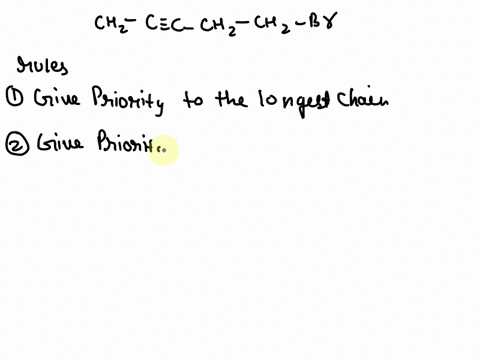 CH₂- C≡C- CH₂-CH₂-Br
rules
① Give Priority to the longest chain
② Give Priorit